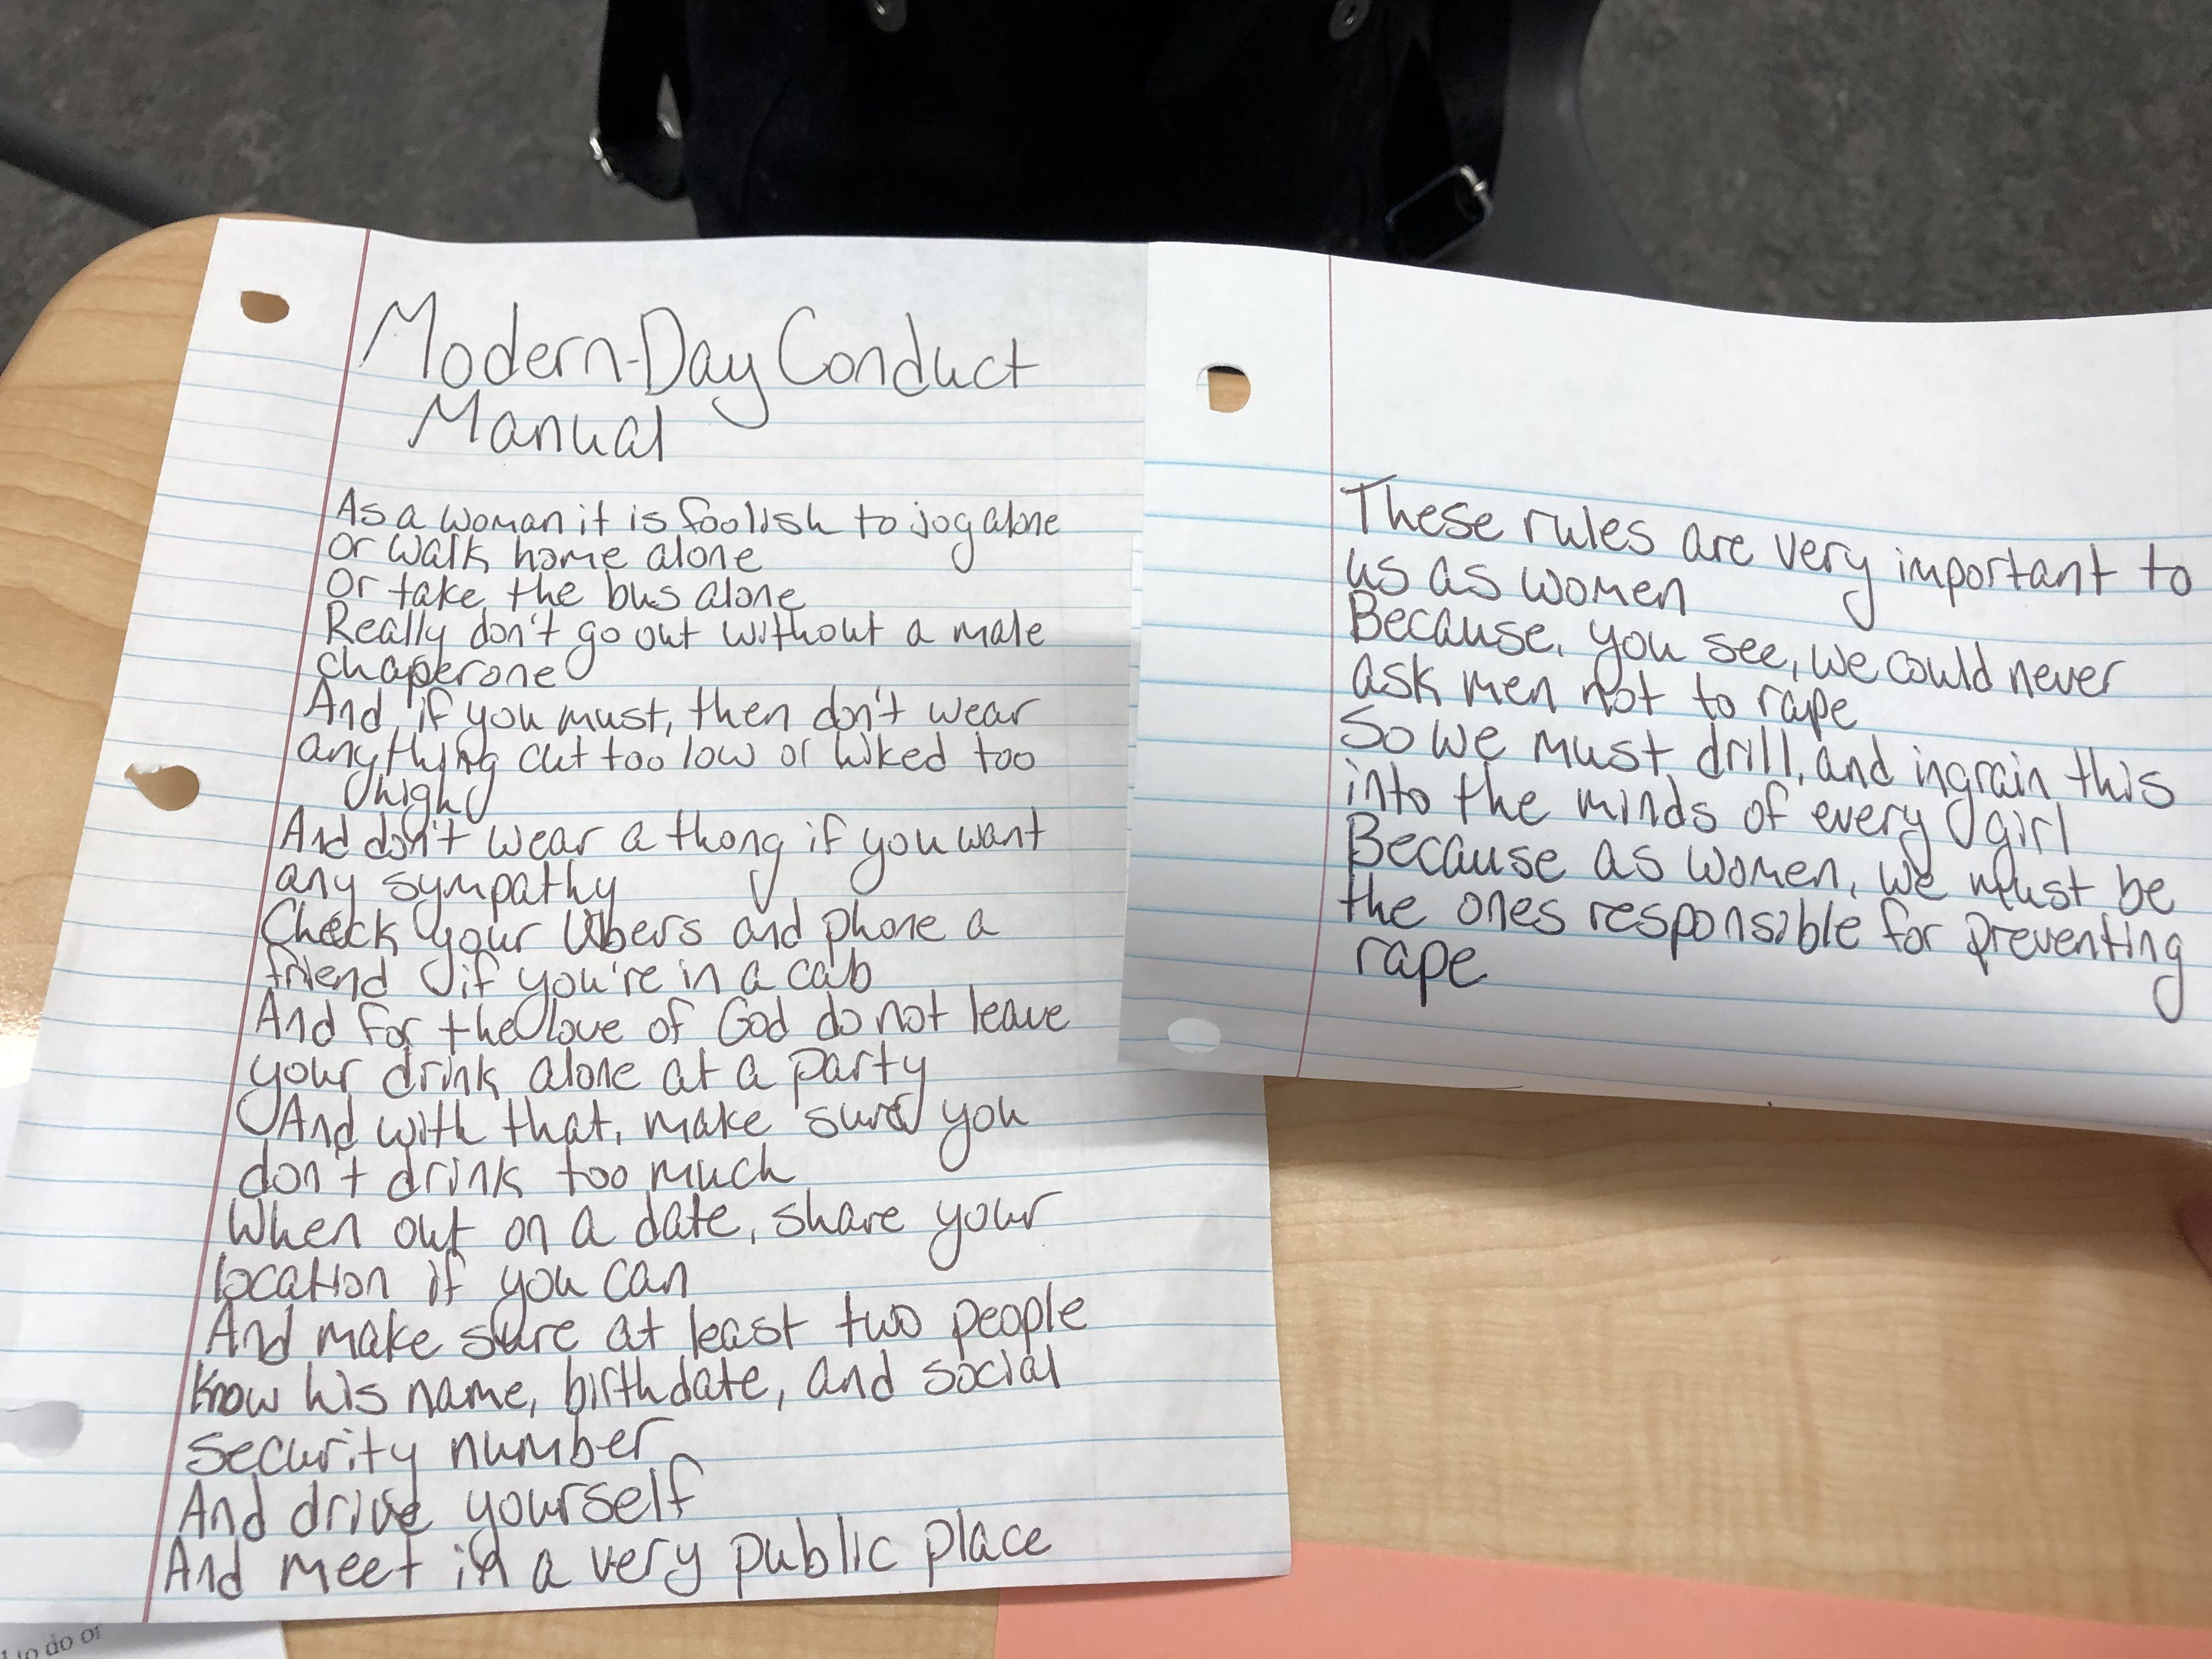 Modern-Day Conduct
Manual
As a woman it is foolish to jog alone
or walk home alone
Or take the bus alone
Really don't go out without a male
chaperone
And, if you must, then don't wear
anything cut too low or hiked too
high
And don't wear a thong if you want
any sympathy
Check your Ubers and phone a
friend if you're in a cab
And for the love of God do not leave
your drink alone at a party
And with that, make sure you
don't drink too much
When out on a date, share your
location if you can
And make sure at least two people
know his name, birthdate, and social
security number
And drive yourself
And meet in a very public place
These rules are very important to
us as women
Because, you see, we could never
ask men not to rape
So we must drill, and ingrain this
into the minds of every girl
Because as women, we must be
the ones responsible for preventing
rape
to do or